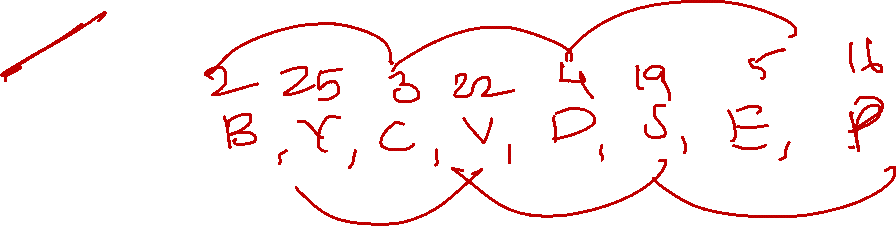 2 25 3 22 4 19 5 16
B, Y, C, V, D, S, E, P